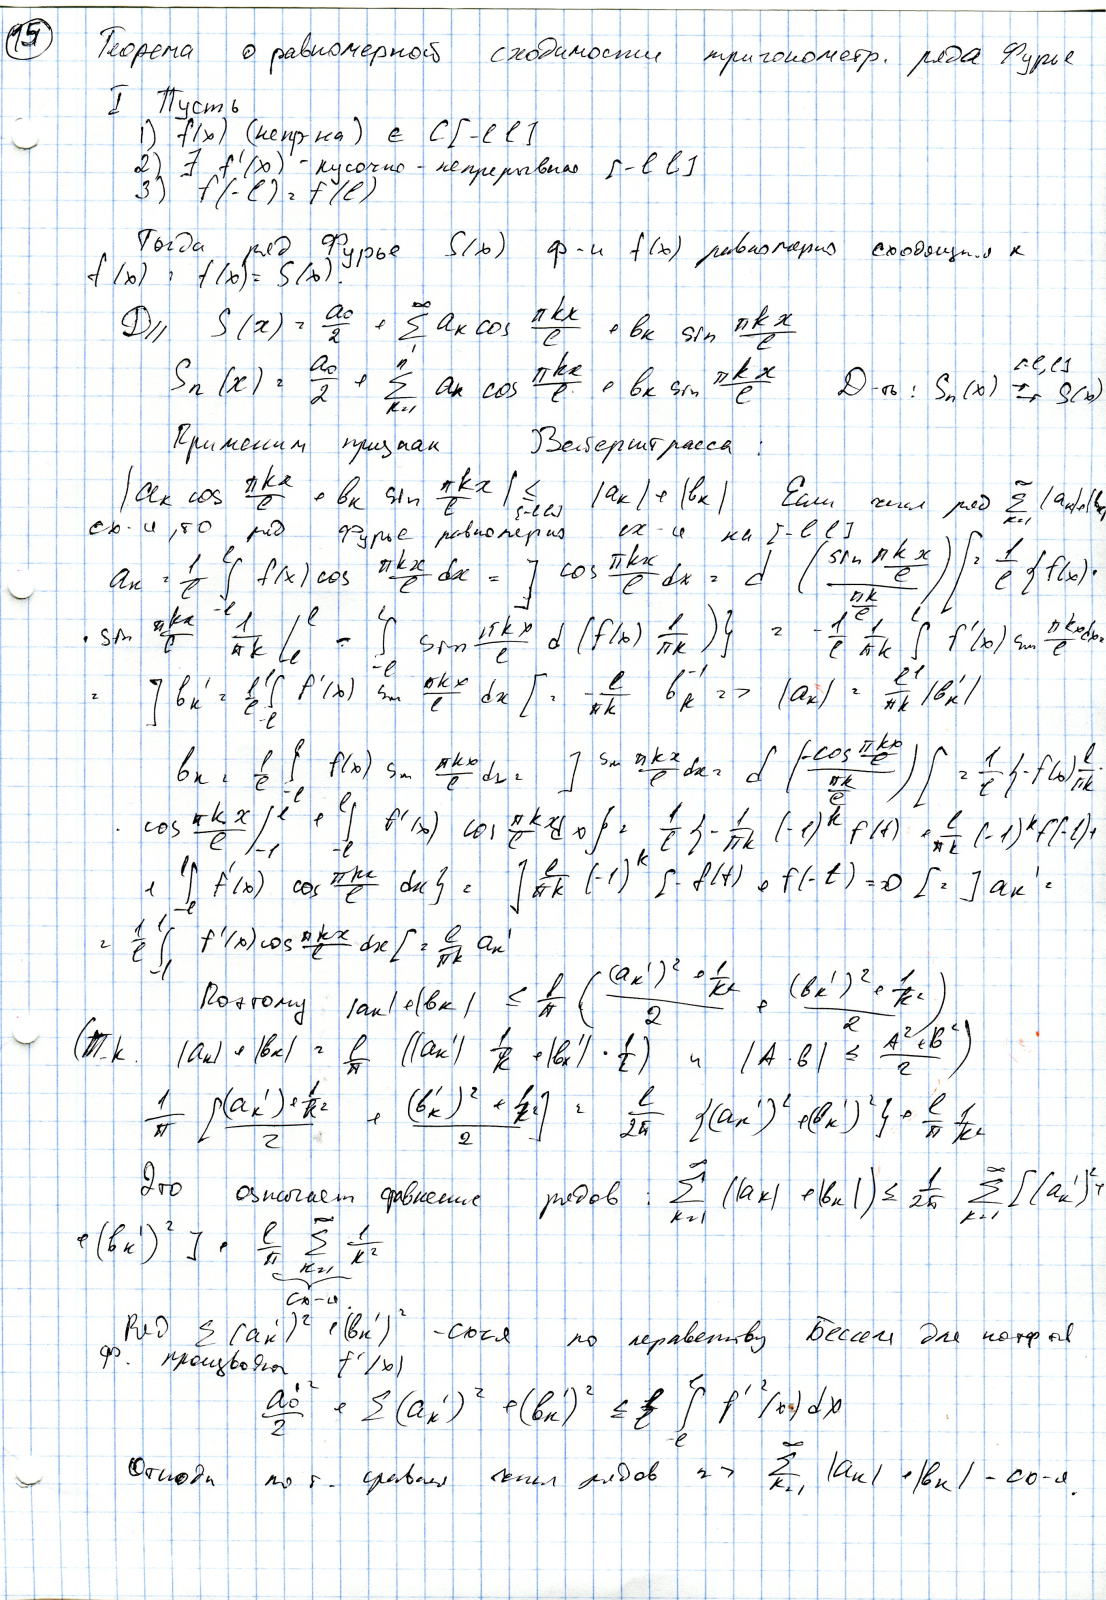 15
Теорема о равномерной сходимости тригонометр. ряда Фурье
I Пусть
1) f(x) (непр-на) ∈ C[-l l]
2) ∃ f'(x) - кусочно-непрерывно [-l l]
3) f(-l) = f(l)
Тогда ряд Фурье S(x) ф-и f(x) равномерно сходящ-ся к
f(x) : f(x) = S(x).
D// S(x) = a₀/2 + ∑₁^∞ aₖ cos πkx/l + bₖ sin πkx/l
Sₙ(x) = a₀/2 + ∑_{k=1}^n aₖ cos πkx/l + bₖ sin πkx/l Д-ть: Sₙ(x) ⇉^{[-l,l]} S(x)
Применим признак Вейерштрасса:
|aₖ cos πkx/l + bₖ sin πkx/l| ≤_{[-l l]} |aₖ| + |bₖ| Если числ ряд ∑_{k=1}^∞ |aₖ|+|bₖ|
сх-ся, то ряд Фурье равномерно сх-ся на [-l l]
aₖ = 1/l ∫_{-l}^l f(x) cos πkx/l dx = ] cos πkx/l dx = d (sin πkx/l / πk/l) [ = 1/l { f(x)·
· sin πkx/l 1/πk |_l^l - ∫_{-l}^l sin πkx/l d (f(x) 1/πk) } = -1/l l/πk ∫_{-l}^l f'(x) sin πkx/l dx =
= ] bₖ' = 1/l ∫_{-l}^l f'(x) sin πkx/l dx [ = -l/πk bₖ' => |aₖ| = l/πk |bₖ'|
bₖ = 1/l ∫_{-l}^l f(x) sin πkx/l dx = ] sin πkx/l dx = d (-cos πkx/l / πk/l) [ = 1/l {-f(x) l/πk ·
· cos πkx/l |_{-l}^l + ∫_{-l}^l f'(x) cos πkx/l dx } = 1/l {-1/πk (-1)^k f(l) + l/πk (-1)^k f(-l) +
+ ∫_{-l}^l f'(x) cos πkx/l dx } = ] l/πk (-1)^k [-f(l) + f(-l) = 0 [ = ] aₖ' =
= 1/l ∫_{-l}^l f'(x) cos πkx/l dx [ = l/πk aₖ'
Поэтому |aₖ| + |bₖ| ≤ l/π ( ((aₖ')² + 1/k²)/2 + ((bₖ')² + 1/k²)/2 )
(Т.к. |aₖ| + |bₖ| = l/π (|aₖ'| 1/k + |bₖ'| · 1/k) и |A·B| ≤ (A²+B²)/2 )
1/π [ ((aₖ') + 1/k²)/2 + ((bₖ')² + 1/k²)/2 ] = l/2π {(aₖ')² + (bₖ')²} + l/π 1/k²
Это означает сравнение рядов: ∑_{k=1}^∞ (|aₖ| + |bₖ|) ≤ 1/2π ∑_{k=1}^∞ [(aₖ')² +
+ (bₖ')² ] + l/π ∑_{k=1}^∞ 1/k²
сх-ся
Ряд ∑ (aₖ')² + (bₖ')² - сх-ся по неравенству Бесселя для коэф-в
ф. производной f'(x)
a₀'²/2 + ∑ (aₖ')² + (bₖ')² ≤ 1/l ∫_{-l}^l f'²(x) dx
Отсюда по т. сравнен числ рядов => ∑_{k=1}^∞ |aₖ| + |bₖ| - сх-я.